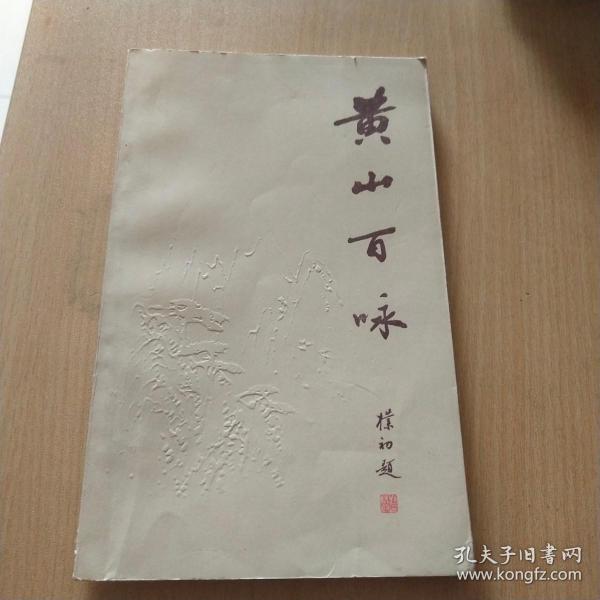 黄山百咏
樸初題
孔夫子旧书网
www.kongfz.com